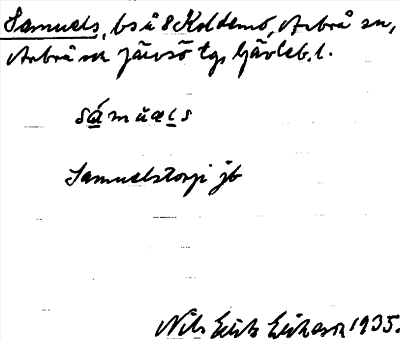 Samuels, bs å 8 Koldemo, Arbrå sn,
Arbrå och Järvsö tgs Gävleb. l.
sámŭæls
Samuelstorp jb
Nils Erik Erikson 1935.